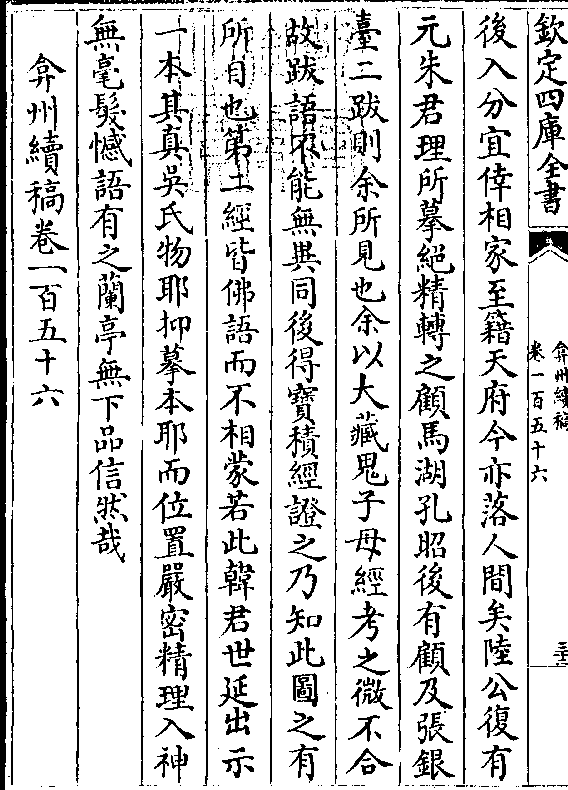 欽定四庫全書
弇州續稿
卷一百五十六
三
後入分宜倖相家至籍天府今亦落人間矣陸公復有
元朱君理所摹絕精轉之顧馬湖孔昭後有顧及張銀
臺二跋則余所見也余以大藏鬼子母經考之微不合
故跋語不能無異同後得寶積經證之乃知此圖之有
所自也第二經皆佛語而不相蒙若此韓君世延出示
一本其真吳氏物耶抑摹本耶而位置嚴密精理入神
無毫髮憾語有之蘭亭無下品信然哉
弇州續稿卷一百五十六